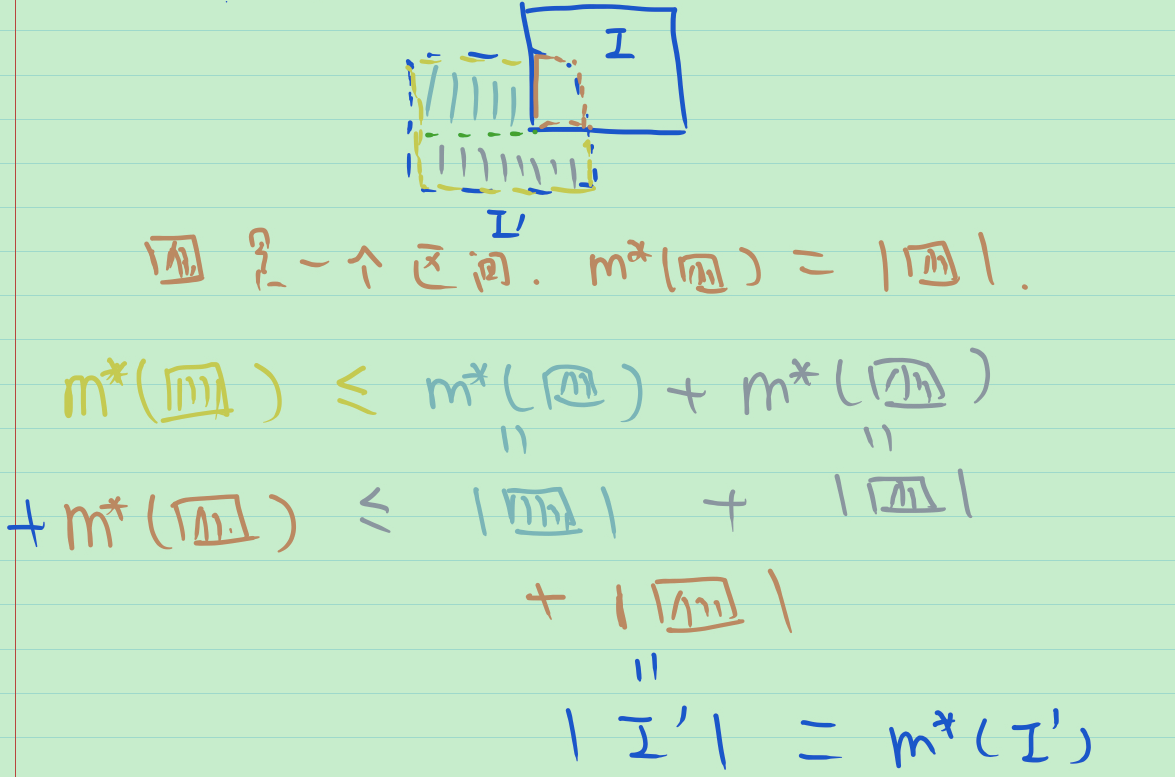 I
I'
是一个区间. m*( ) = | | .
m*( ) ≤ m*( ) + m*( )
= =
+ m*( ) ≤ | | + | |
+ | |
=
| I' | = m*( I' )